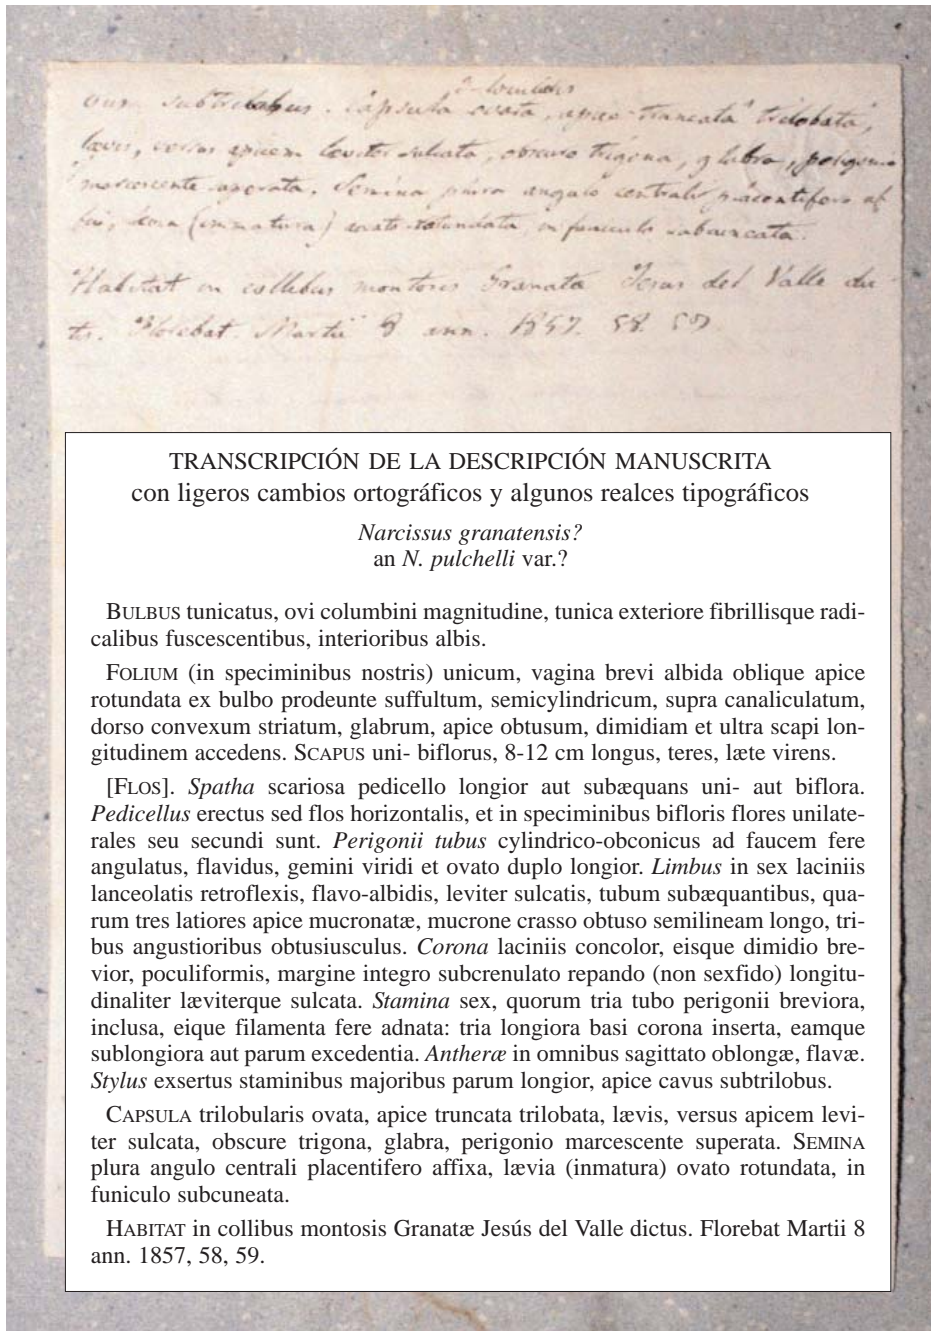 3-loculari
ous subtrilobus. Capsula ovata, apice truncata trilobata,
lævis, versus apicem leviter sulcata, obscure trigona, glabra, perigonio
marcescente superata. Semina plura angulo centrali placentifero af
fixa, lævia (inmatura) ovato rotundata, in funiculo subcuneata.
Habitat in collibus montosis Granatæ Jesus del Valle dic-
tis. Florebat Martii 8 ann. 1857. 58. 59
TRANSCRIPCIÓN DE LA DESCRIPCIÓN MANUSCRITA
con ligeros cambios ortográficos y algunos realces tipográficos
Narcissus granatensis?
an N. pulchelli var.?
BULBUS tunicatus, ovi columbini magnitudine, tunica exteriore fibrillisque radi-
calibus fuscescentibus, interioribus albis.
FOLIUM (in speciminibus nostris) unicum, vagina brevi albida oblique apice
rotundata ex bulbo prodeunte suffultum, semicylindricum, supra canaliculatum,
dorso convexum striatum, glabrum, apice obtusum, dimidiam et ultra scapi lon-
gitudinem accedens. SCAPUS uni- biflorus, 8-12 cm longus, teres, læte virens.
[FLOS]. Spatha scariosa pedicello longior aut subæquans uni- aut biflora.
Pedicellus erectus sed flos horizontalis, et in speciminibus bifloris flores unilate-
rales seu secundi sunt. Perigonii tubus cylindrico-obconicus ad faucem fere
angulatus, flavidus, gemini viridi et ovato duplo longior. Limbus in sex laciniis
lanceolatis retroflexis, flavo-albidis, leviter sulcatis, tubum subæquantibus, qua-
rum tres latiores apice mucronatæ, mucrone crasso obtuso semilineam longo, tri-
bus angustioribus obtusiusculus. Corona laciniis concolor, eisque dimidio bre-
vior, poculiformis, margine integro subcrenulato repando (non sexfido) longitu-
dinaliter læviterque sulcata. Stamina sex, quorum tria tubo perigonii breviora,
inclusa, eique filamenta fere adnata: tria longiora basi corona inserta, eamque
sublongiora aut parum excedentia. Antheræ in omnibus sagittato oblongæ, flavæ.
Stylus exsertus staminibus majoribus parum longior, apice cavus subtrilobus.
CAPSULA trilobularis ovata, apice truncata trilobata, lævis, versus apicem levi-
ter sulcata, obscure trigona, glabra, perigonio marcescente superata. SEMINA
plura angulo centrali placentifero affixa, lævia (inmatura) ovato rotundata, in
funiculo subcuneata.
HABITAT in collibus montosis Granatæ Jesús del Valle dictus. Florebat Martii 8
ann. 1857, 58, 59.